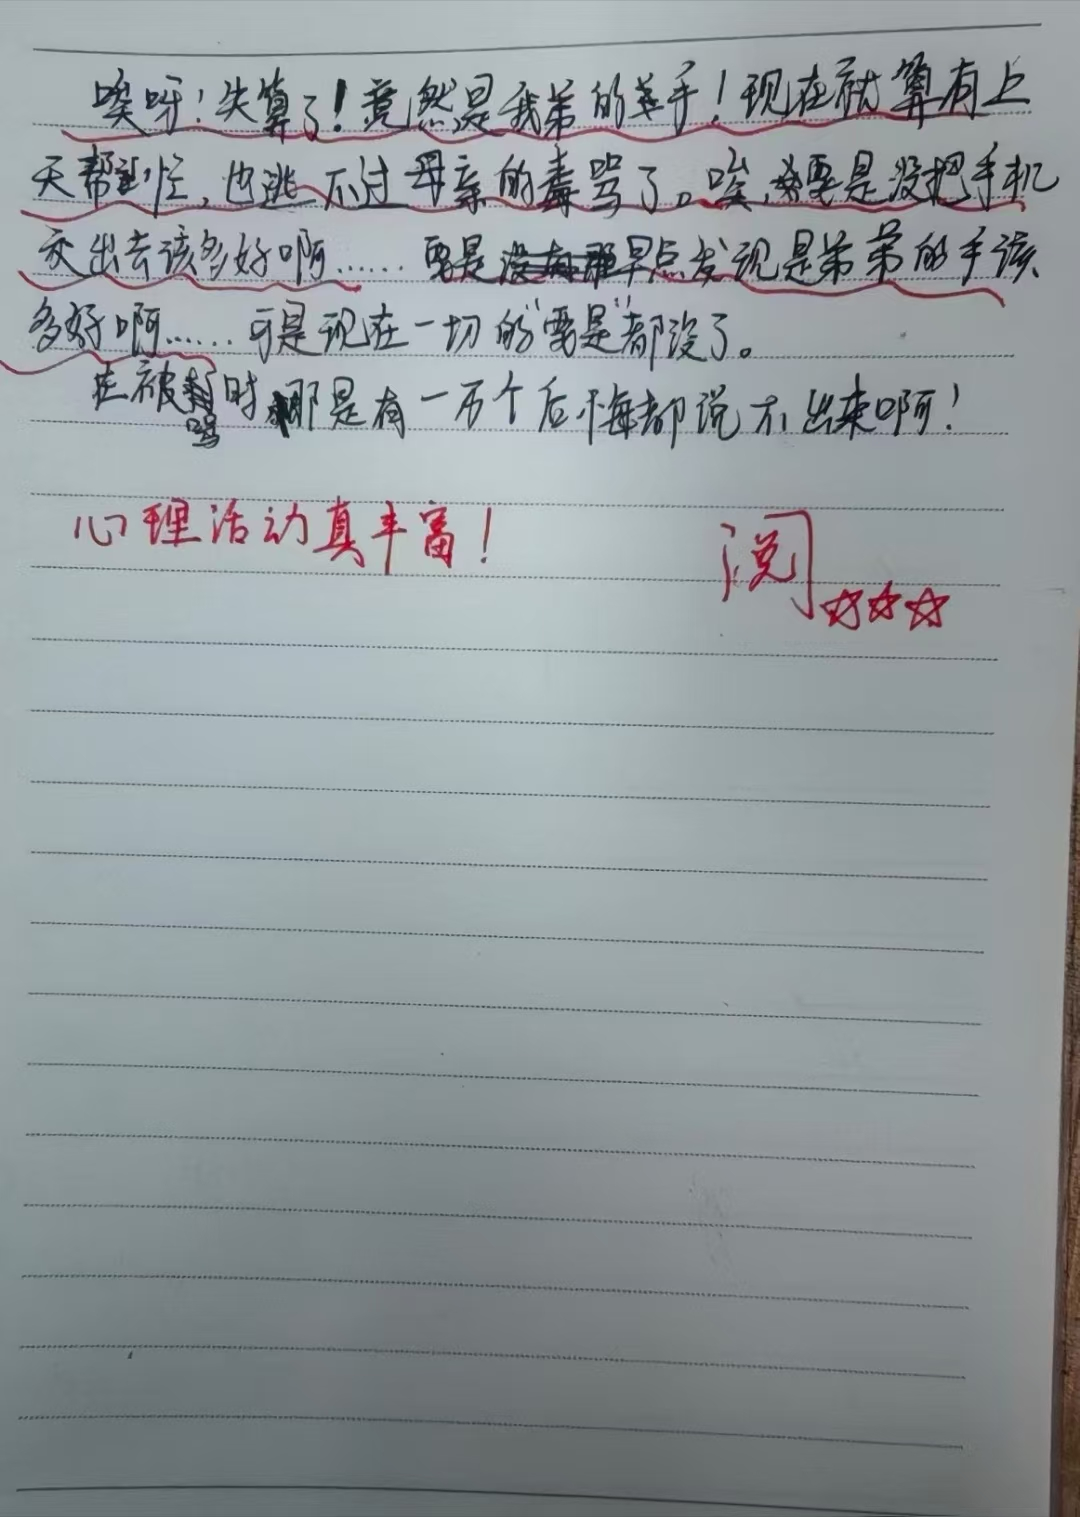 唉呀！失算了！竟然是我弟的手！现在就算有上
天帮忙，也逃不过母亲的毒骂了。唉，要是没把手机
交出去该多好啊……要是早点发现是弟弟的手该
多好啊……可是现在一切的“要是”都没了。
在被骂时哪是有一万个后悔都说不出来啊！
心理活动真丰富！
阅☆☆☆